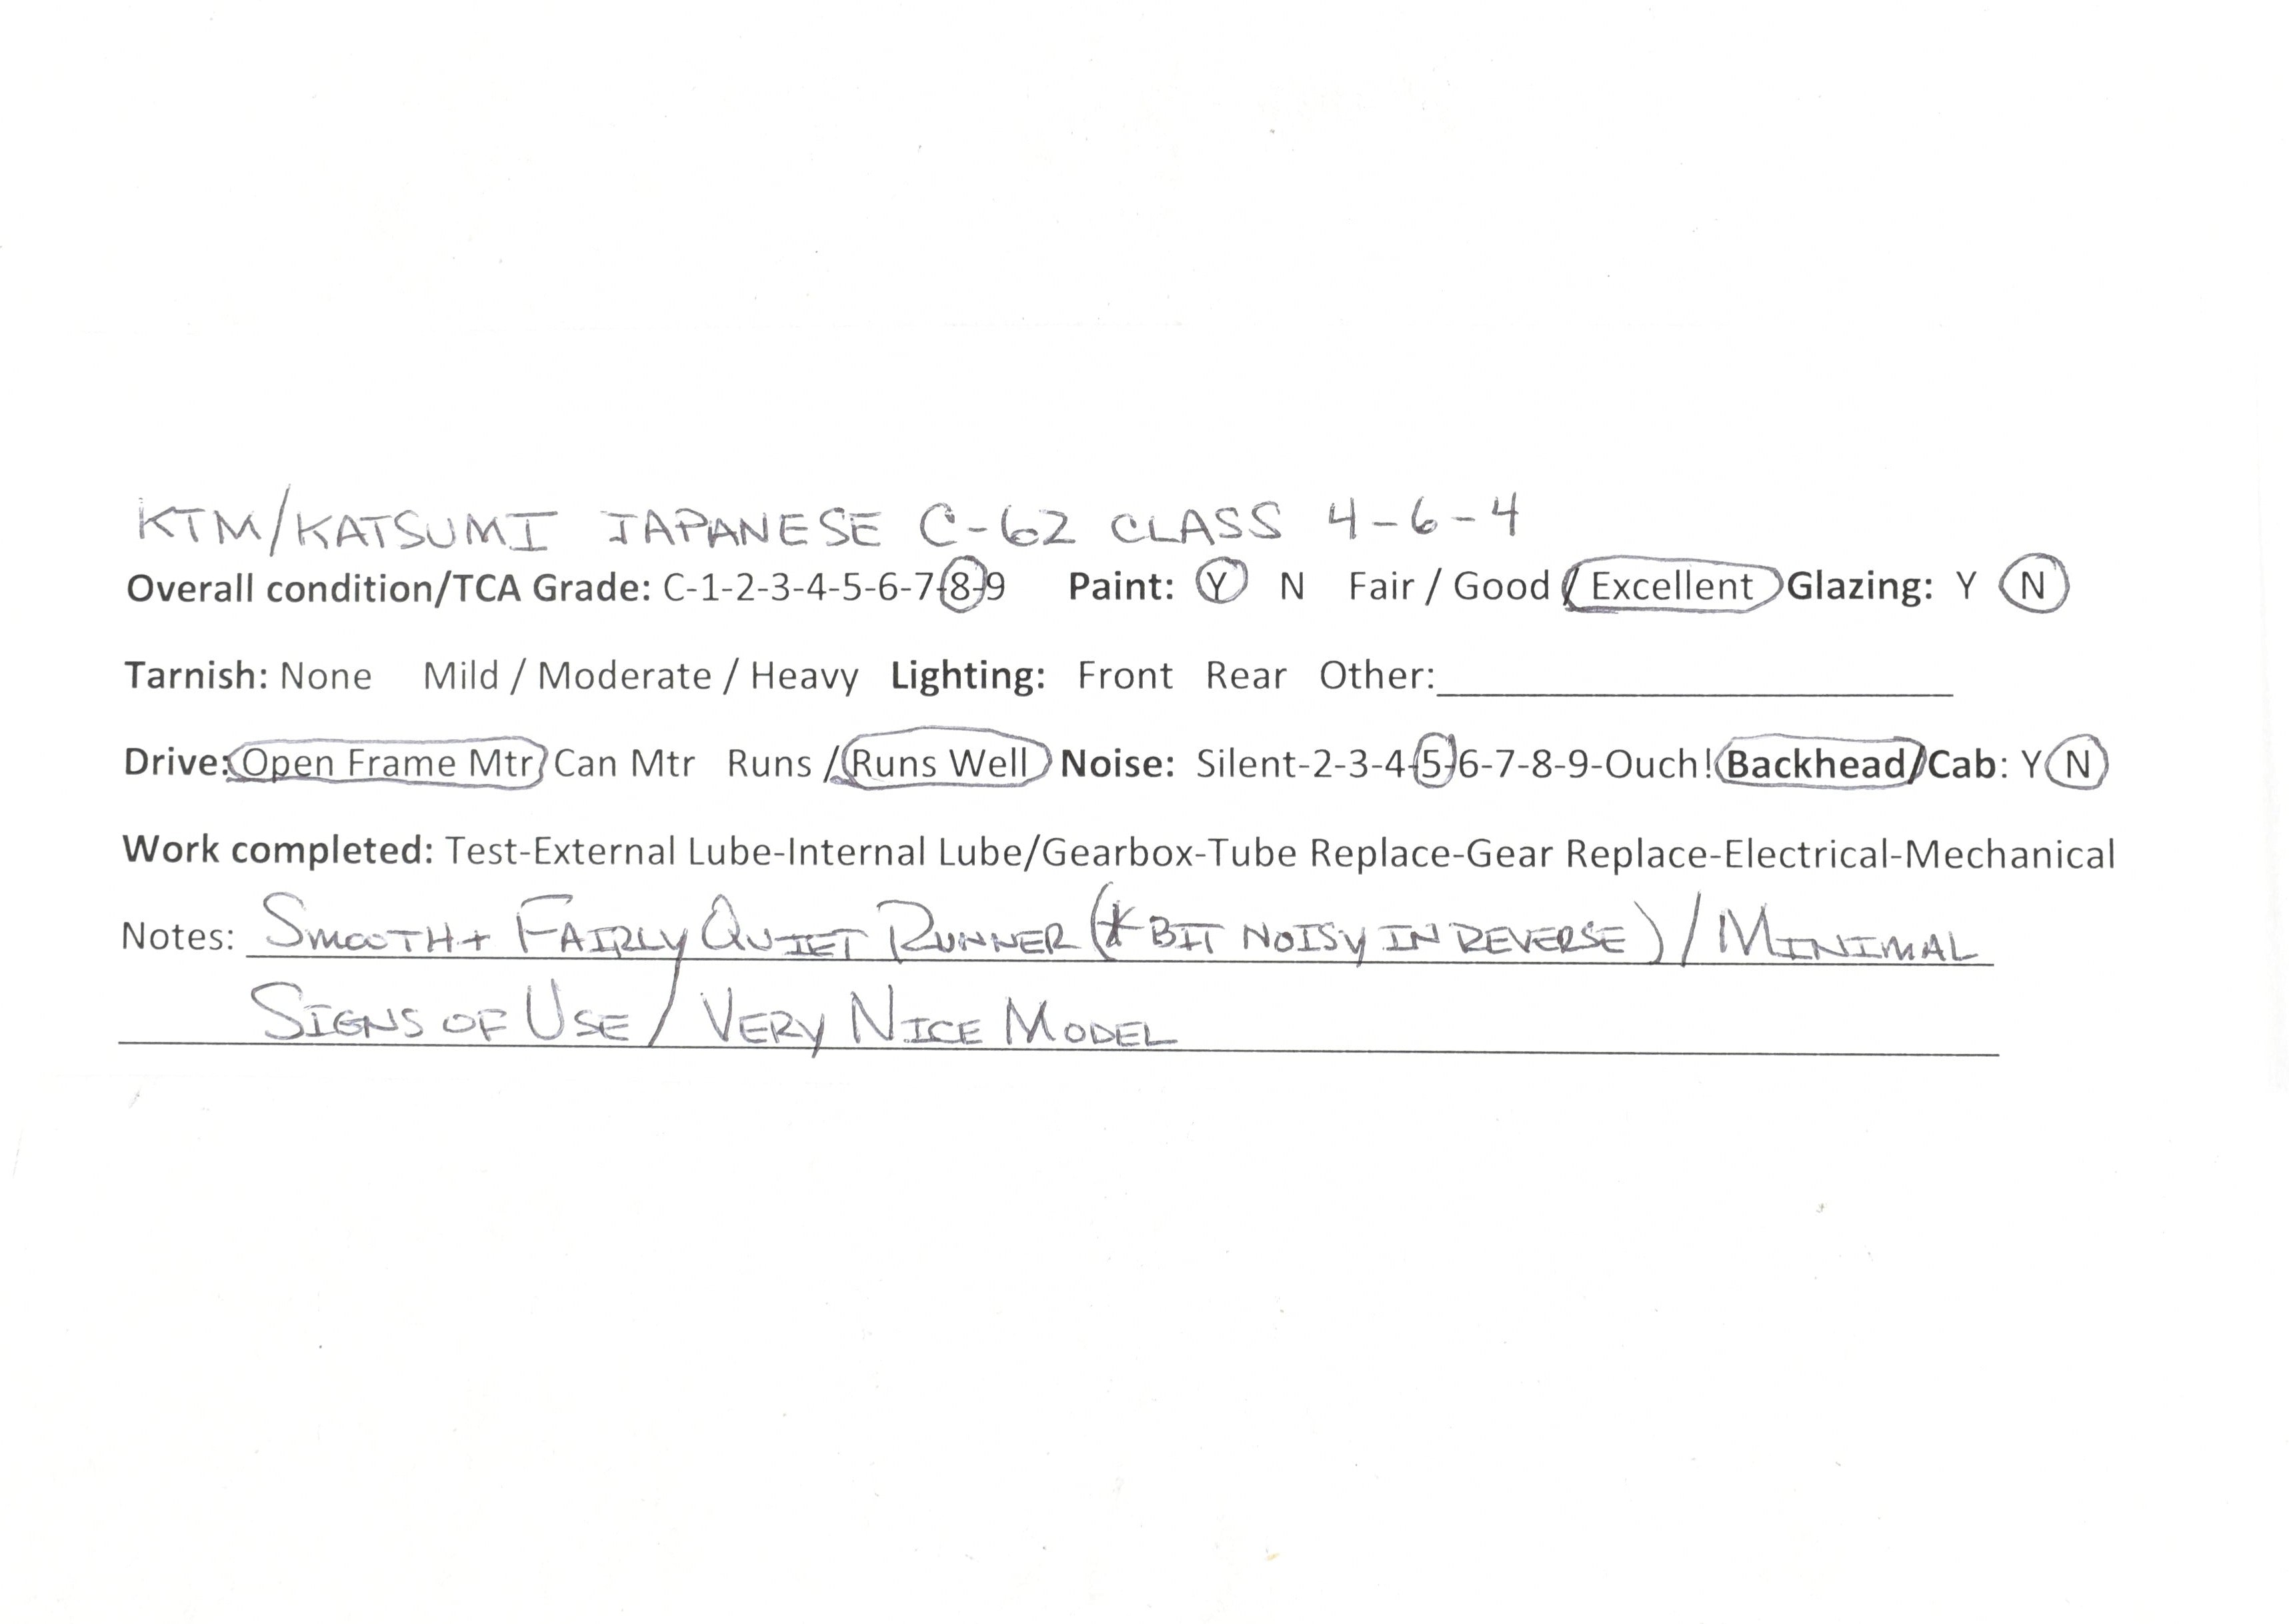 KTM/KATSUMI JAPANESE C-62 CLASS 4-6-4
Overall condition/TCA Grade: C-1-2-3-4-5-6-7-8-9 Paint: Y N Fair / Good / Excellent Glazing: Y N
Tarnish: None Mild / Moderate / Heavy Lighting: Front Rear Other:
Drive: Open Frame Mtr Can Mtr Runs / Runs Well Noise: Silent-2-3-4-5-6-7-8-9-Ouch! Backhead/Cab: Y N
Work completed: Test-External Lube-Internal Lube/Gearbox-Tube Replace-Gear Replace-Electrical-Mechanical
Notes: SMOOTH + FAIRLY QUIET RUNNER (* BIT NOISY IN REVERSE) / MINIMAL
SIGNS OF USE / VERY NICE MODEL